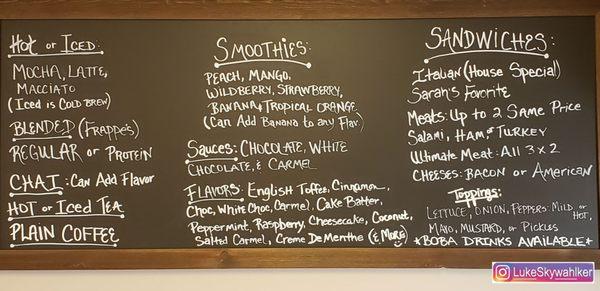 Hot or Iced:
MOCHA, LATTE,
MACCIATO
(ICED is COLD BREW)
BLENDED (FRAPPES)
REGULAR or PROTEIN
CHAI: CAN ADD FLAVOR
HOT or ICED TEA
PLAIN COFFEE
SMOOTHIES:
PEACH, MANGO,
WILDBERRY, STRAWBERRY,
BANANA & TROPICAL ORANGE
(CAN ADD BANANA to ANY FLAV)
SAUCES: CHOCOLATE, WHITE
CHOCOLATE, & CARMEL
FLAVORS: ENGLISH TOFFEE, CINNAMON,
CHOC, WHITE CHOC, CARMEL, CAKE BATTER,
PEPPERMINT, RASPBERRY, CHEESECAKE, COCONUT,
SALTED CARMEL, CREME DE MENTHE (& MORE)
SANDWICHES:
Italian (House Special)
Sarah's Favorite
Meats: Up to 2 Same Price
Salami, HAM & TURKEY
Ultimate Meat: All 3 x 2
CHEESES: BACON or AMERICAN
Toppings:
LETTUCE, ONION, PEPPERS: MILD or HOT,
MAYO, MUSTARD, or PICKLES
*BOBA DRINKS AVAILABLE*
LukeSkywahlker